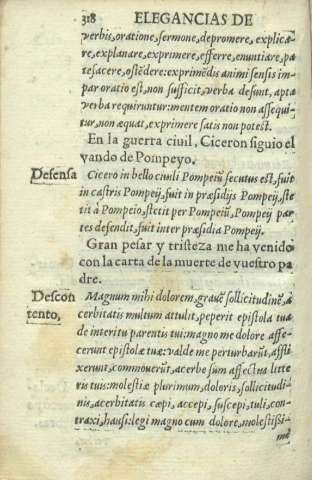 318 ELEGANCIAS DE
verbis, oratione, sermone, depromere, explica-
re, explanare, exprimere, efferre, enuntiare, pa
tefacere, ostẽdere: exprimẽdis animi sensis im-
par oratio est, non sufficit, verba desunt, apta
verba requiruntur: mentem oratio non assequi-
tur, non æquat, exprimere satis non potest.
En la guerra ciuil, Ciceron siguio el
vando de Pompeyo.
Defensa
Cicero in bello ciuili Pompeiũ secutus est, fuit
in castris Pompeij, fuit in præsidijs Pompeij, ste
tit à Pompeio, stetit per Pompeiũ, Pompeij par
tes defendit, fuit inter præsidia Pompeij.
Gran pesar y tristeza me ha venido
con la carta de la muerte de vuestro pa
dre.
Descon
tento,
Magnum mihi dolorem, grauẽ sollicitudinẽ, a
cerbitatis multum attulit, peperit epistola tua
de interitu parentis tui: magno me dolore affe-
cerunt epistolæ tuæ: valde me perturbarũt, affli
xerunt, commouerũt, acerbo sum affectus litte
ris tuis: molestiæ plurimum, doloris, sollicitudi-
nis, acerbitatis cæpi, accepi, suscepi, tuli, con-
traxi, hausi: legi magno cum dolore, molestissi-
mè